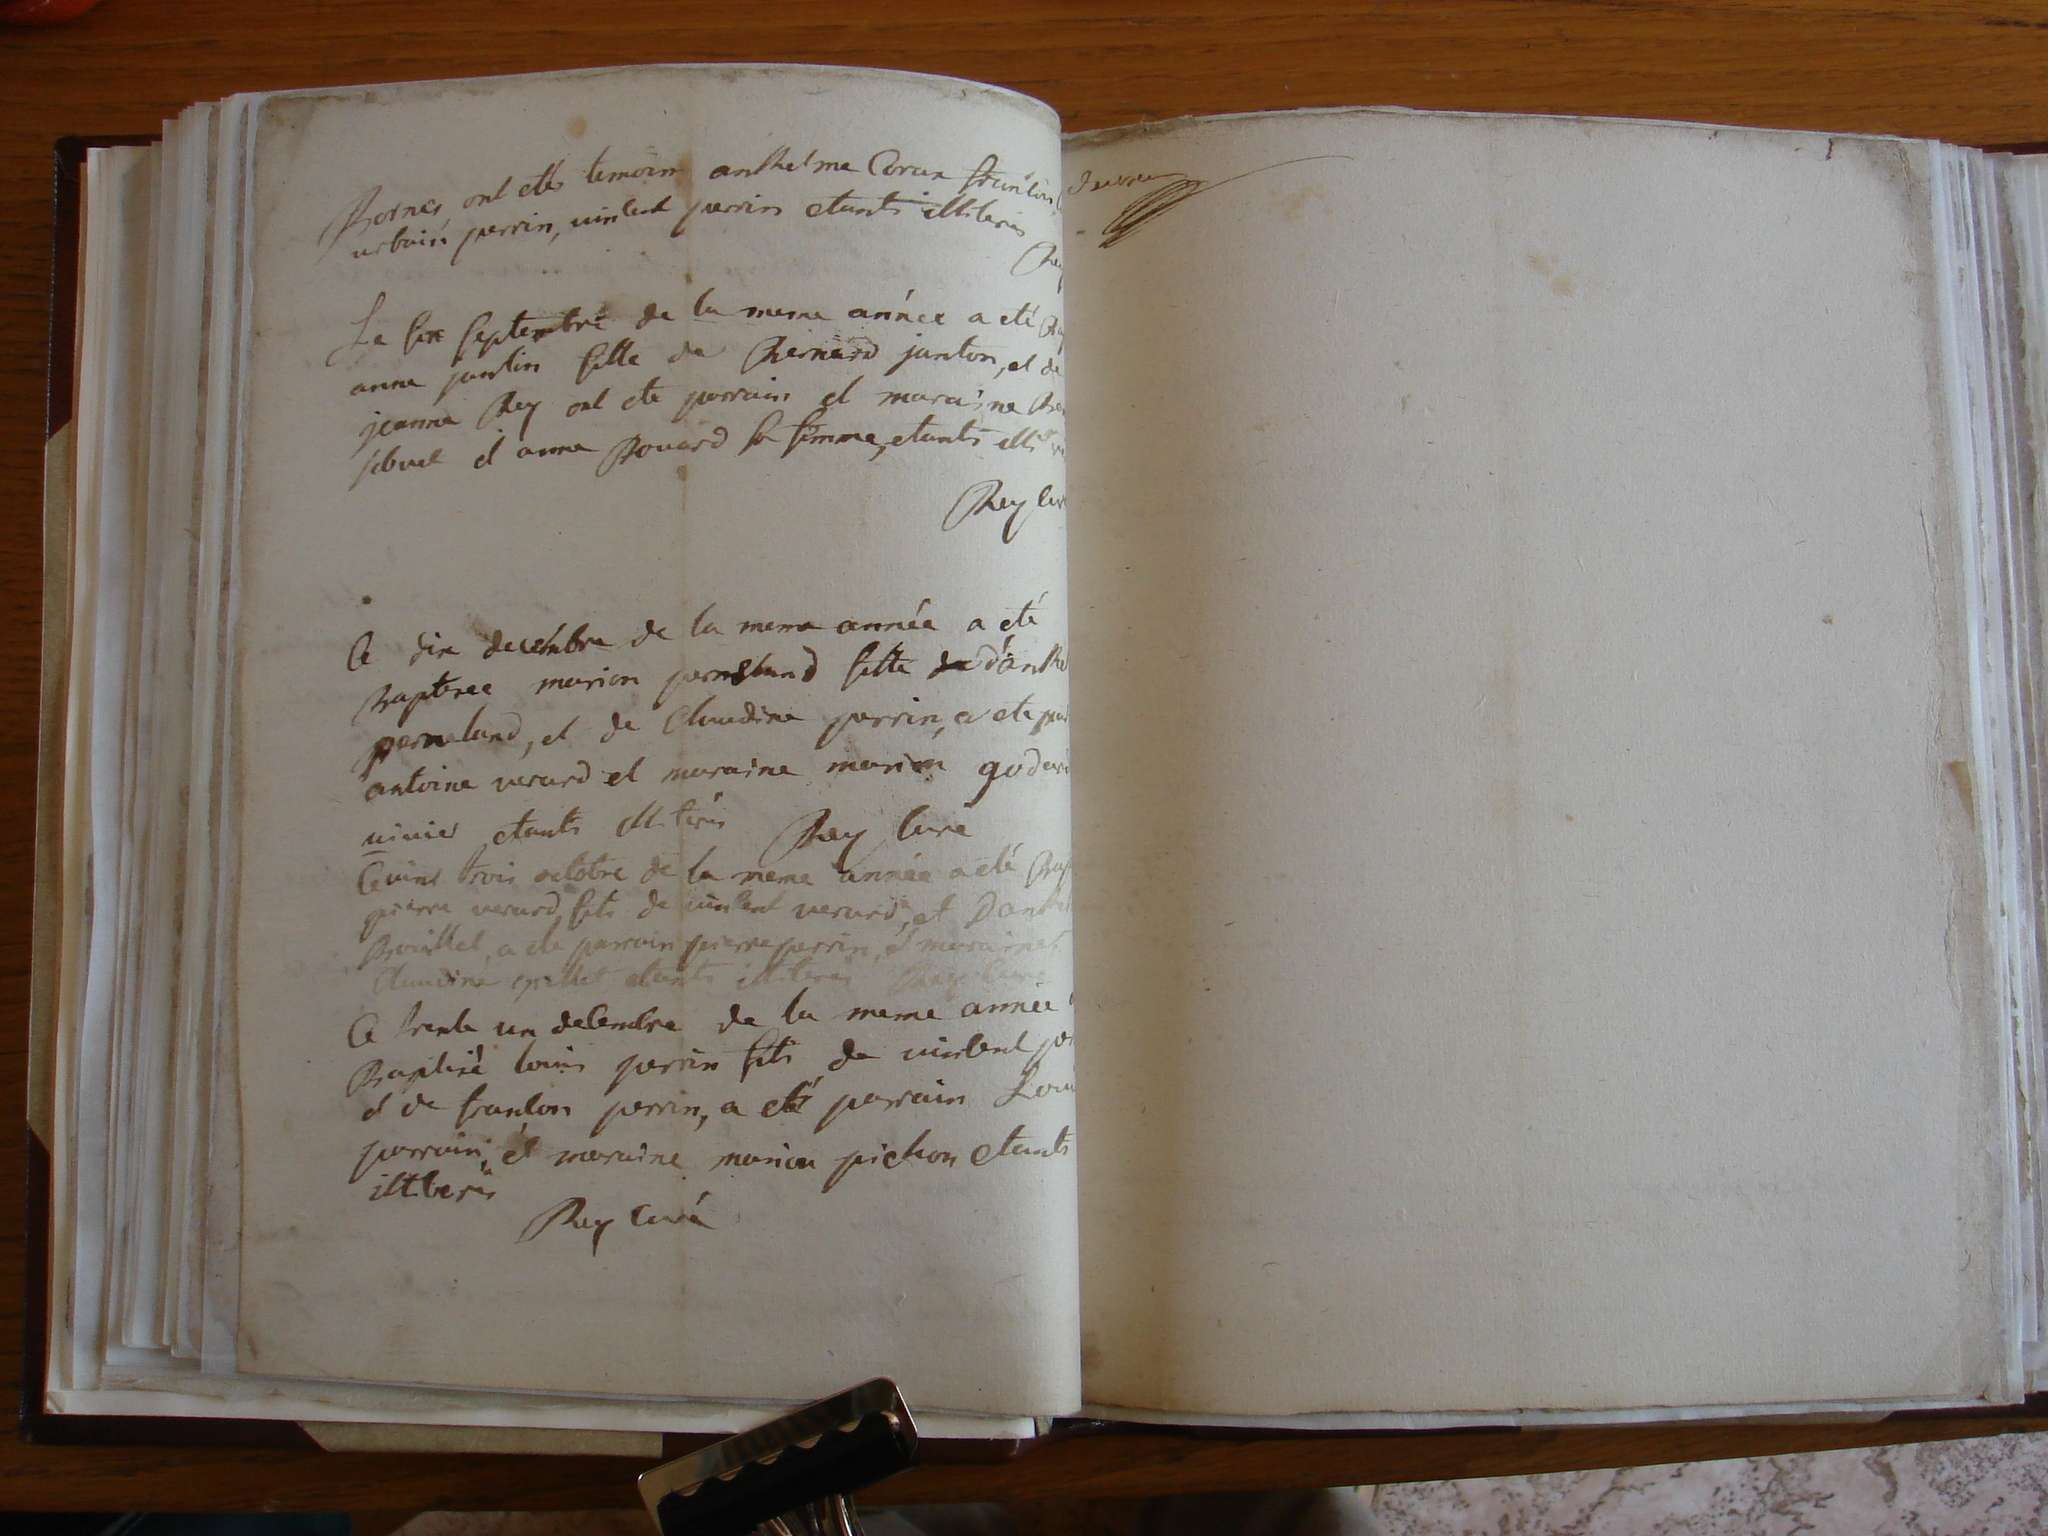 Bornes, ont etés temoin anthelme Corax franson
urbain perrin, vinlent perrin etants illiterés
Rey
Le six septembre de la meme année a eté
anne jantin fille de Bernard janton, et de
jeanne Rey ont ete parrain et maraine
et anne Bouard sa femme, etants
Rey
Ce dix decembre de la meme année a eté
Baptisee marion perneland fille d'anthe
perneland, et de Claudine perrin, a ete par
antoine verard et maraine marion godard
vivier etants illiterés Rey Cure
Ce vint trois octobre de la meme année a eté Bap
pierre verard, fils de vinlent verard, et D'anthel
Bouillet, a ete parrain pierre perrin, et maraine
Claudine etants illiterés Rey Cure
Ce trente un decembre de la meme année
Baptisé louis perrin fils de vinlent per
et de franson perrin, a eté parrain Loui
parrain, et maraine marion pichon etants
illiterés
Rey Curé